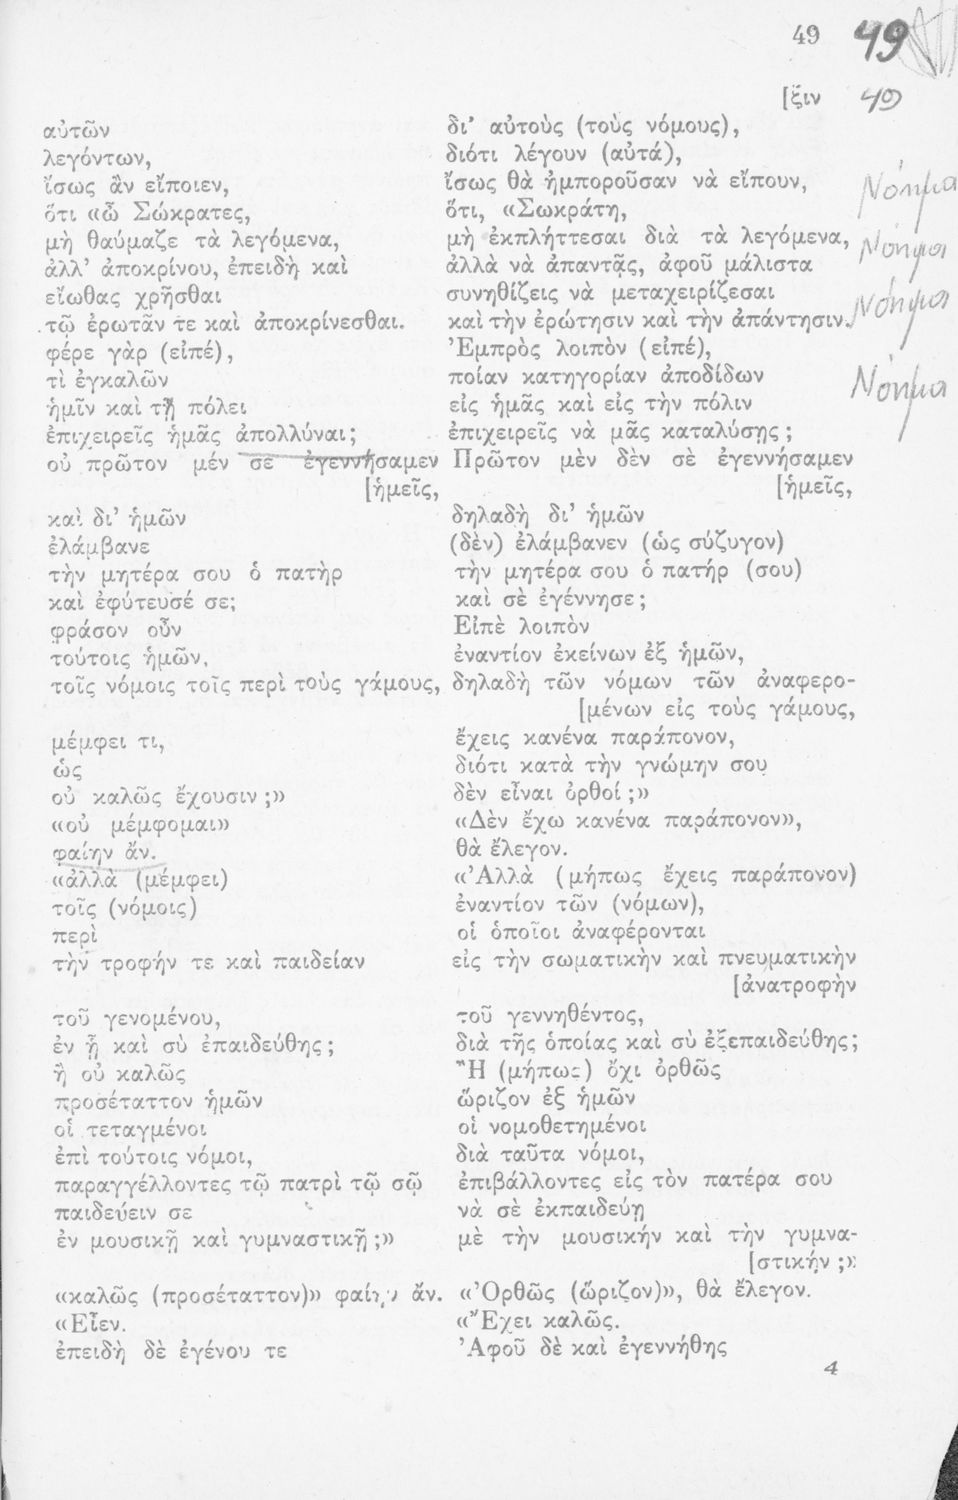 49 49
[ξιν 49
αὐτῶν δι' αὐτοὺς (τοὺς νόμους),
λεγόντων, διότι λέγουν (αὐτά),
ἴσως ἂν εἴποιεν, ἴσως θὰ ἠμποροῦσαν νὰ εἴπουν, Νόημα
ὅτι «ὦ Σώκρατες, ὅτι, «Σωκράτη,
μὴ θαύμαζε τὰ λεγόμενα, μὴ ἐκπλήττεσαι διὰ τὰ λεγόμενα, Νόημα
ἀλλ' ἀποκρίνου, ἐπειδὴ καὶ ἀλλὰ νὰ ἀπαντᾷς, ἀφοῦ μάλιστα
εἴωθας χρῆσθαι συνηθίζεις νὰ μεταχειρίζεσαι Νόημα
τῷ ἐρωτᾶν τε καὶ ἀποκρίνεσθαι. καὶ τὴν ἐρώτησιν καὶ τὴν ἀπάντησιν.
φέρε γὰρ (εἰπέ), Ἐμπρὸς λοιπὸν (εἰπέ),
τὶ ἐγκαλῶν ποίαν κατηγορίαν ἀποδίδων Νόημα
ἡμῖν καὶ τῇ πόλει εἰς ἡμᾶς καὶ εἰς τὴν πόλιν
ἐπιχειρεῖς ἡμᾶς ἀπολλύναι; ἐπιχειρεῖς νὰ μᾶς καταλύσῃς;
οὐ πρῶτον μέν σε ἐγεννήσαμεν Πρῶτον μὲν δὲν σὲ ἐγεννήσαμεν
[ἡμεῖς, [ἡμεῖς,
καὶ δι' ἡμῶν δηλαδὴ δι' ἡμῶν
ἐλάμβανε (δὲν) ἐλάμβανεν (ὡς σύζυγον)
τὴν μητέρα σου ὁ πατὴρ τὴν μητέρα σου ὁ πατήρ (σου)
καὶ ἐφύτευσέ σε; καὶ σὲ ἐγέννησε;
φράσον οὖν Εἰπὲ λοιπὸν
τούτοις ἡμῶν, ἐναντίον ἐκείνων ἐξ ἡμῶν,
τοῖς νόμοις τοῖς περὶ τοὺς γάμους, δηλαδὴ τῶν νόμων τῶν ἀναφερο-
[μένων εἰς τοὺς γάμους,
μέμφει τι, ἔχεις κανένα παράπονον,
ὡς διότι κατὰ τὴν γνώμην σου
οὐ καλῶς ἔχουσιν;» δὲν εἶναι ὀρθοί;»
«οὐ μέμφομαι» «Δὲν ἔχω κανένα παράπονον»,
φαίην ἄν. θὰ ἔλεγον.
«ἀλλὰ (μέμφει) «Ἀλλὰ (μήπως ἔχεις παράπονον)
τοῖς (νόμοις) ἐναντίον τῶν (νόμων),
περὶ οἱ ὁποῖοι ἀναφέρονται
τὴν τροφήν τε καὶ παιδείαν εἰς τὴν σωματικὴν καὶ πνευματικὴν
[ἀνατροφὴν
τοῦ γενομένου, τοῦ γεννηθέντος,
ἐν ᾗ καὶ σὺ ἐπαιδεύθης; διὰ τῆς ὁποίας καὶ σὺ ἐξεπαιδεύθης;
ἢ οὐ καλῶς Ἢ (μήπως) ὄχι ὀρθῶς
προσέταττον ἡμῶν ὥριζον ἐξ ἡμῶν
οἱ τεταγμένοι οἱ νομοθετημένοι
ἐπὶ τούτοις νόμοι, διὰ ταῦτα νόμοι,
παραγγέλλοντες τῷ πατρὶ τῷ σῷ ἐπιβάλλοντες εἰς τὸν πατέρα σου
παιδεύειν σε νὰ σὲ ἐκπαιδεύῃ
ἐν μουσικῇ καὶ γυμναστικῇ;» μὲ τὴν μουσικήν καὶ τὴν γυμνα-
[στικήν;»
«καλῶς (προσέταττον)» φαίην ἄν. «Ὀρθῶς (ὥριζον)», θὰ ἔλεγον.
«Εἶεν. «Ἔχει καλῶς.
ἐπειδὴ δὲ ἐγένου τε Ἀφοῦ δὲ καὶ ἐγεννήθης
4